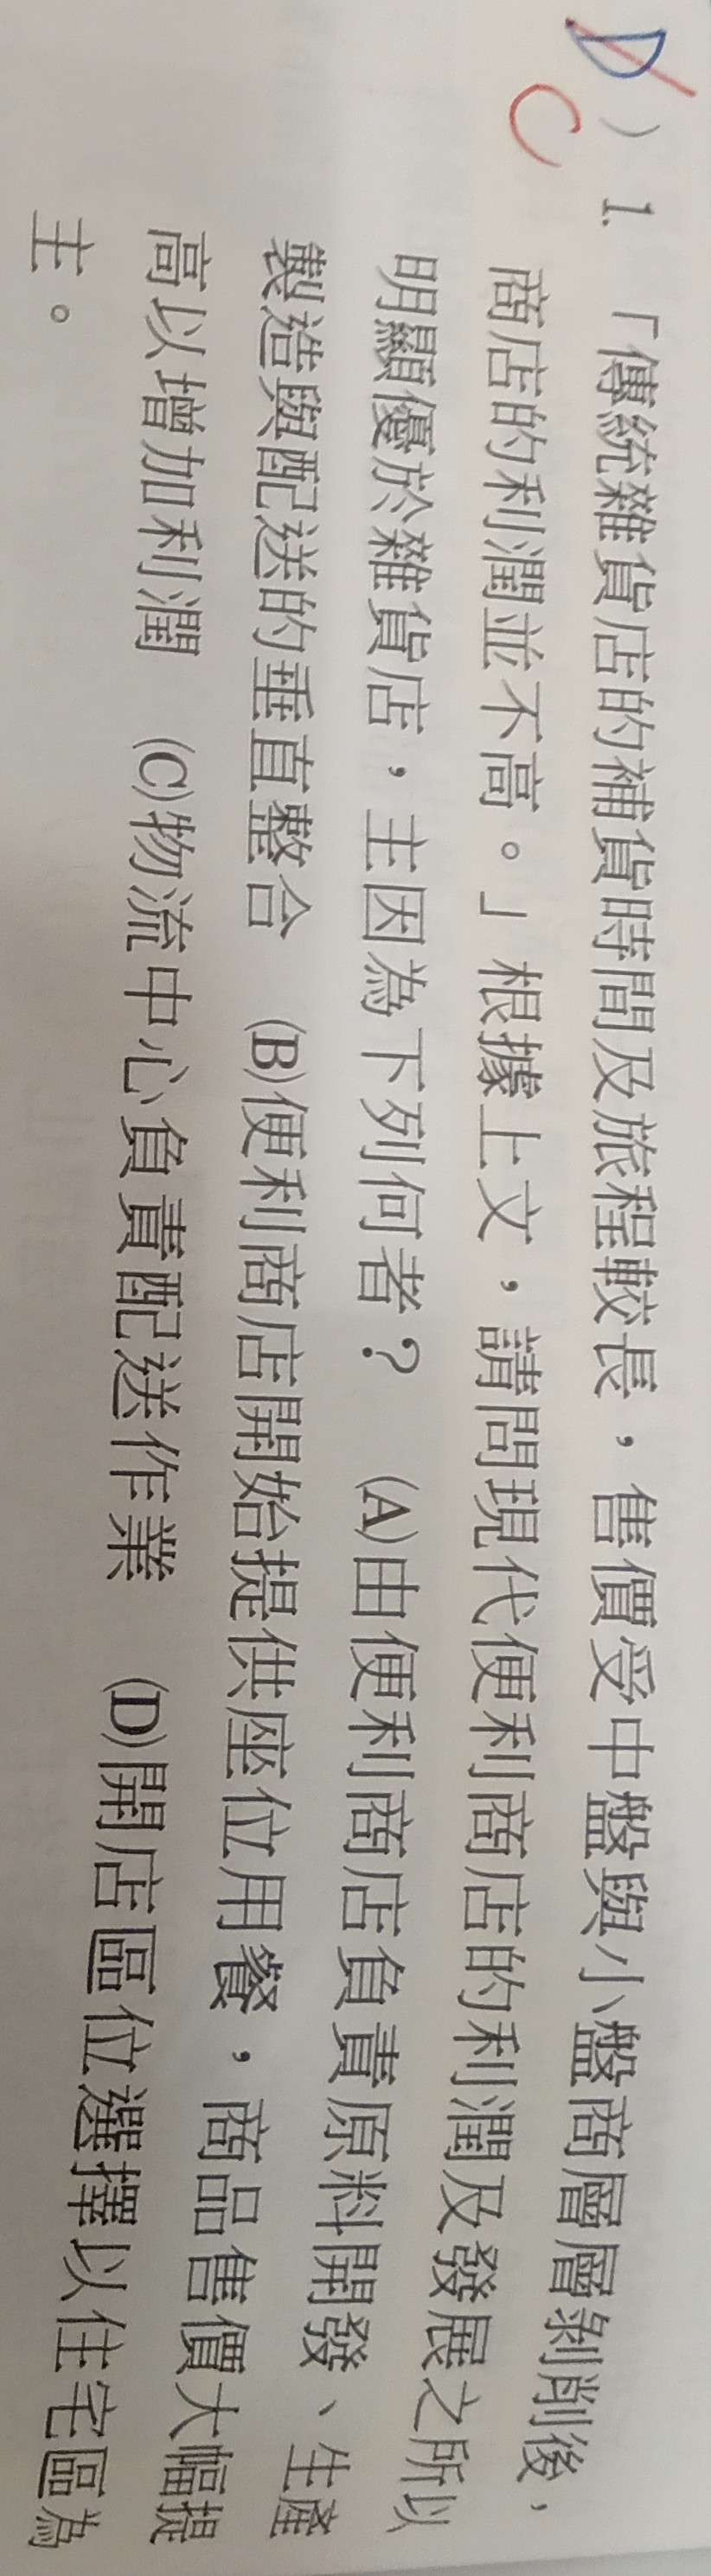 D
C
) 1. 「傳統雜貨店的補貨時間及旅程較長，售價受中盤與小盤商層層剝削後，
商店的利潤並不高。」根據上文，請問現代便利商店的利潤及發展之所以
明顯優於雜貨店，主因為下列何者？ (A)由便利商店負責原料開發、生產
製造與配送的垂直整合 (B)便利商店開始提供座位用餐，商品售價大幅提
高以增加利潤 (C)物流中心負責配送作業 (D)開店區位選擇以住宅區為
主。